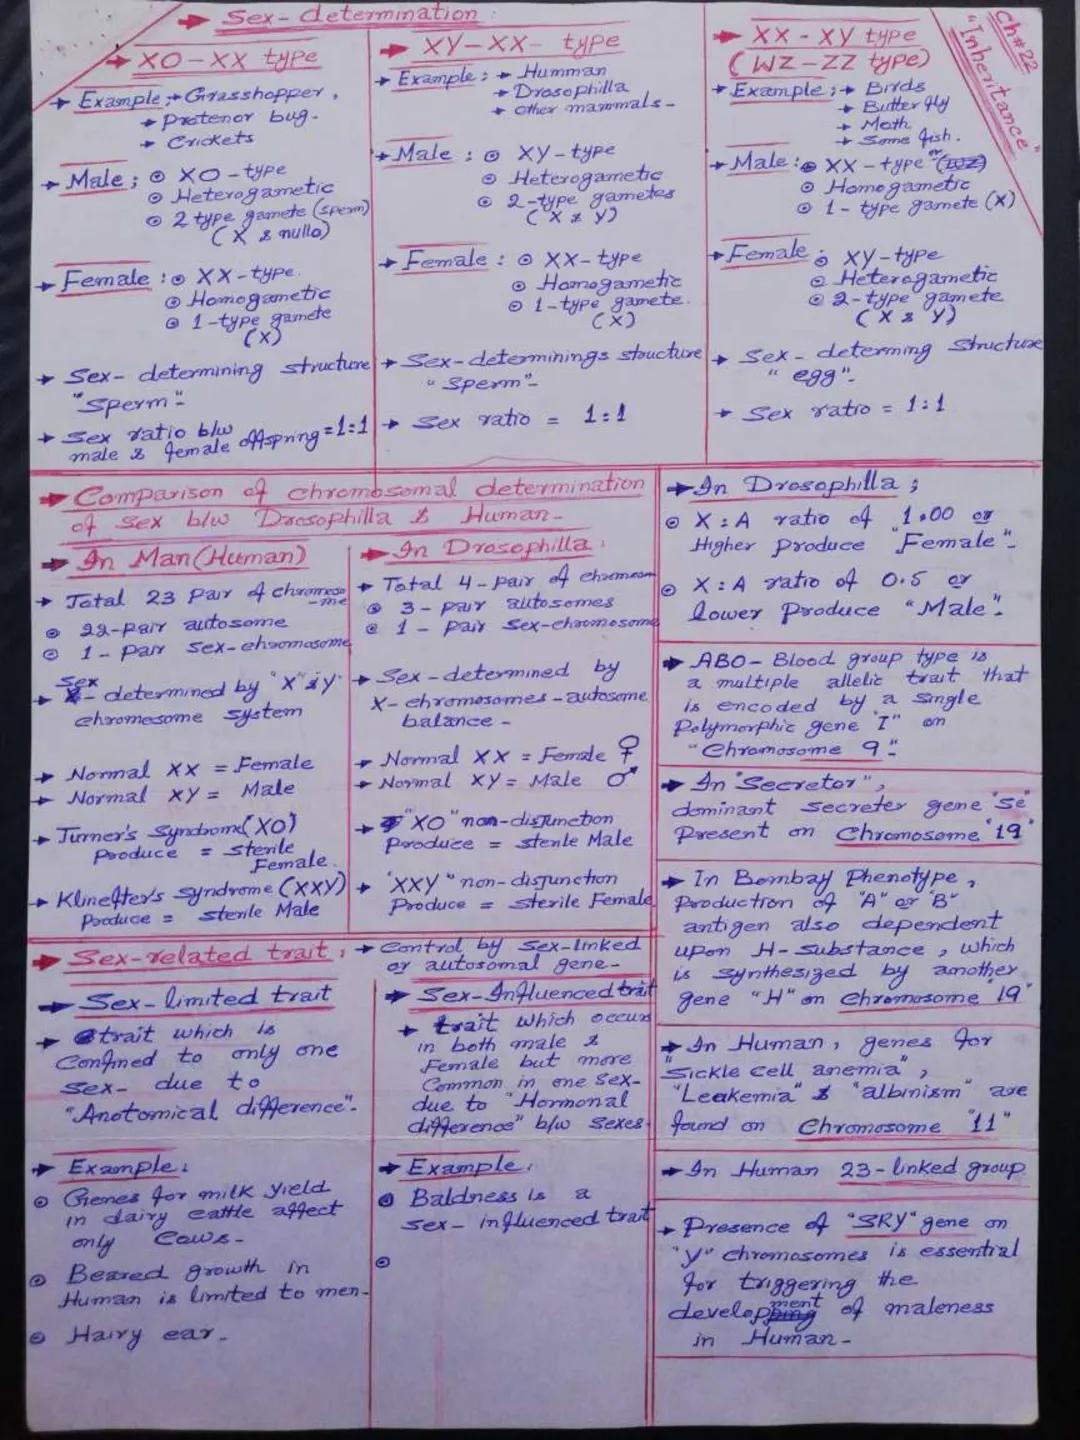 → Sex-determination:
Ch#22
"Inheritance"
→ XO-XX type
→ Example:→ Grasshopper,
→ Protenor bug.
→ Crickets
→ Male; ⊙ XO-type
⊙ Heterogametic
⊙ 2 type gamete (sperm)
(X & nullo)
→ Female : ⊙ XX-type.
⊙ Homogametic
⊙ 1-type gamete
(X)
→ Sex-determining structure
"Sperm"-
→ Sex ratio b/w
male & female offspring = 1:1
→ XY-XX- type
→ Example : → Humman
→ Drosophilla
→ other mammals-
→ Male : ⊙ XY-type
⊙ Heterogametic
⊙ 2-type gametes
(X & Y)
→ Female : ⊙ XX-type
⊙ Homogametic
⊙ 1-type gamete.
(X)
→ Sex-determinings structure
"Sperm"-
→ Sex ratio = 1:1
→ XX-XY type
(WZ-ZZ type)
→ Example ;→ Birds
→ Butterfly
→ Moth
→ Some fish.
→ Male : ⊙ XX-type or
⊙ Homogametic
⊙ 1-type gamete (X)
→ Female ⊙ XY-type
⊙ Heterogametic
⊙ 2-type gamete
(X & Y)
→ Sex-determing Structure
"egg"-
→ Sex ratio = 1:1
→ Comparison of chromosomal determination
of sex b/w Drosophilla & Human-
→ In Man(Human)
→ Total 23 Pair of chromoso
-me
⊙ 22-pair autosome
⊙ 1-pair sex-chromosome
→ Sex- determined by "X" & "Y"
chromosome system
→ Normal XX = Female
→ Normal XY = Male
→ Turner's Syndrome(XO)
Produce = sterile
Female.
→ Klinefter's syndrome (XXY)
Produce = sterile Male
→ In Drosophilla:
→ Total 4-pair of chromosom
⊙ 3-pair autosomes
⊙ 1-pair sex-chromosome
→ Sex-determined by
X-chromosomes-autosome
balance-
→ Normal XX = Female ♀
→ Normal XY = Male ♂
→ "XO" non-disjunction
Produce = sterile Male
→ "XXY" non-disjunction
Produce = sterile Female
→ In Drosophilla;
⊙ X:A ratio of 1.00 or
Higher produce "Female"-
⊙ X:A ratio of 0.5 or
lower Produce "Male"-
→ ABO-Blood group type is
a multiple allelic trait that
is encoded by a single
Polymorphic gene "I" on
"Chromosome 9"-
→ In "Secretor",
dominant secreter gene "Se"
Present on Chromosome "19"
→ In Bombay Phenotype,
Production of "A" or "B"
antigen also dependent
upon H-substance, which
is synthesized by another
gene "H" on chromosome "19"
→ In Human, genes for
"Sickle cell anemia",
"Leukemia" & "albinism" are
found on Chromosome "11"
→ In Human 23-linked group
→ Presence of "SRY" gene on
"Y" chromosomes is essential
for triggering the
development of maleness
in Human-
→ Sex-related trait: → Control by sex-linked
or autosomal gene-
→ Sex-limited trait
→ trait which is
Confined to only one
Sex- due to
"Anotomical difference"-
→ Example:
⊙ Genes for milk yield
in dairy cattle affect
only Cows-
⊙ Beared growth in
Human is limited to men-
⊙ Hairy ear-
→ Sex-Influenced trait
→ trait which occurs
in both male &
Female but more
Common in one Sex-
due to "Hormonal
difference" b/w sexes-
→ Example:
⊙ Baldness is a
sex-influenced trait
⊙